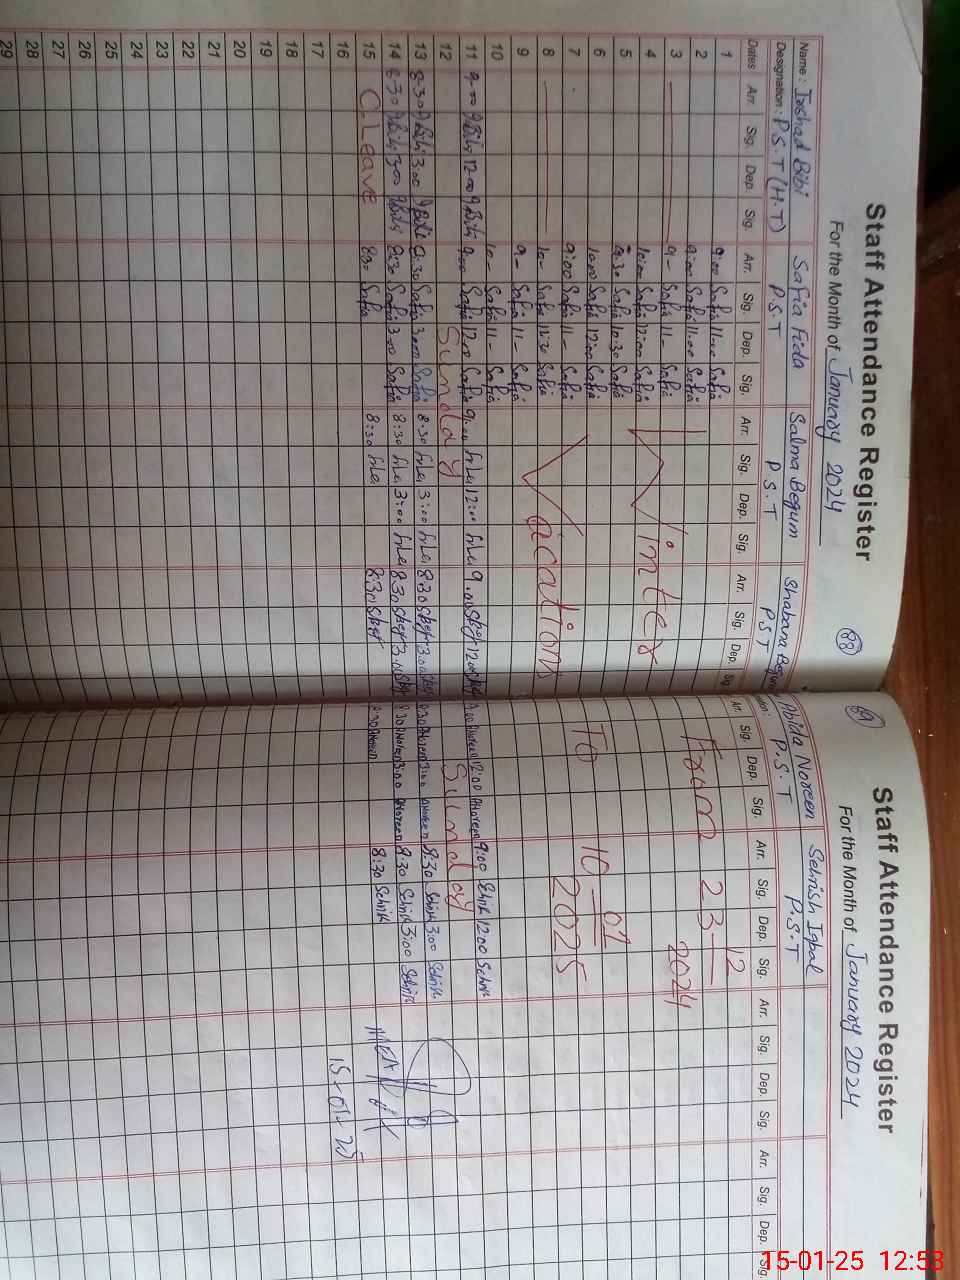 Staff Attendance Register
For the Month of January 2024
88
Name: Irshad Bibi Safia Fida Salma Begum Shabana Begum
Designation: P.S.T (H.T) P.S.T P.S.T P.S.T
Dates Arr. Sig. Dep. Sig. Arr. Sig. Dep. Sig. Arr. Sig. Dep. Sig. Arr. Sig. Dep. Sig.
1 9:00 Safia 11:00 Safia
2 9:00 Safia 11:00 Safia
3 9- Safia 11- Safia
4 10:00 Safia 12:00 Safia
5 9:30 Safia 10:30 Safia
6 10:00 Safia 12:00 Safia
7 9:00 Safia 11- Safia
8 10- Safia 12:30 Safia
9 9- Safia 11- Safia
10 10- Safia 11- Safia
Winter Vacations
11 9:00 IBibi 12:00 IBibi 9:00 Safia 12:00 Safia 9:00 12:00 9:00 12:00
12 Sunday
13 8:30 IBibi 3:00 IBibi 8:30 Safia 3:00 Safia 8:30 3:00 8:30 3:00
14 8:30 IBibi 3:00 IBibi 8:30 Safia 3:00 Safia 8:30 3:00 8:30 3:00
15 C.Leave 8:30 Safia 8:30 8:30
16
17
18
19
20
21
22
23
24
25
26
27
28
29
Staff Attendance Register
For the Month of January 2024
89
Abida Noreen Sehrish Iqbal
P.S.T P.S.T
Arr. Sig. Dep. Sig. Arr. Sig. Dep. Sig. Arr. Sig. Dep. Sig. Arr. Sig. Dep. Sig.
From 23-12-2024
TO 10-01-2025
9:00 ANoreen 12:00 ANoreen 9:00 Sehrish 12:00 Sehrish
Sunday
8:30 ANoreen 3:00 ANoreen 8:30 Sehrish 3:00 Sehrish
8:30 ANoreen 3:00 ANoreen 8:30 Sehrish 3:00 Sehrish
8:30 ANoreen 8:30 Sehrish
MEA
15-01-25
15-01-25 12:53